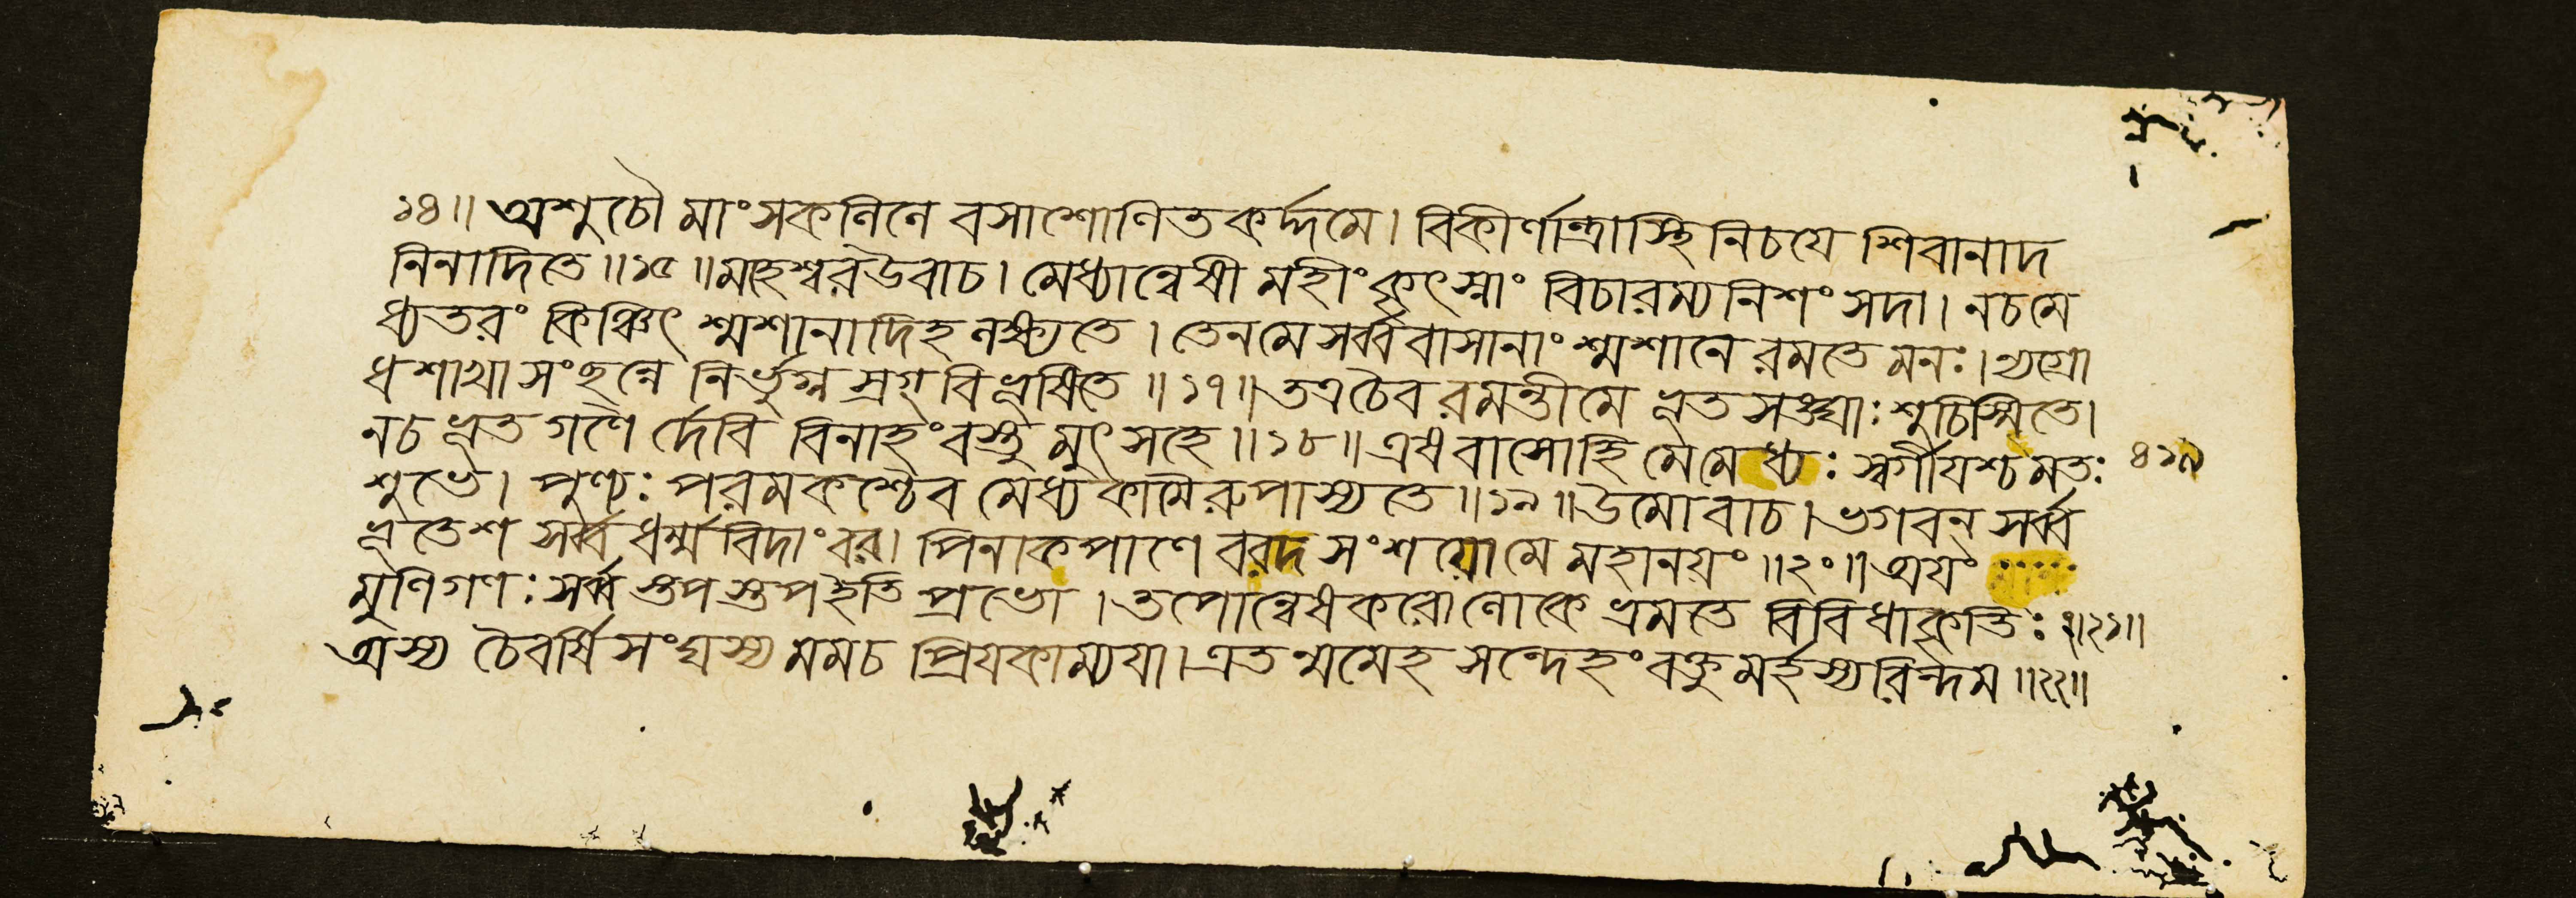 ১৪॥ অশুচৌ মাংসকলিলে বসাশোণিতকর্দ্দমে। বিকীর্ণান্ত্রাস্থিনিচযে শিবানাদ
নিনাদিতে॥১৫॥মহেশ্বরউবাচ। মেধ্যান্বেষী মহীং কৃৎস্নাং বিচারম্যনিশং সদা। নচমে
ধ্যতরং কিঞ্চিৎ শ্মশানাদিহ লক্ষ্যতে। তেনমেসর্ব্ববাসানাং শ্মশানে রমতে মনঃ। ন্যগ্রো
ধশাখাসংছন্নে নির্ভুগ্নস্রগ্বিভূষিতে॥১৭॥তত্রচৈব রমন্তীমে ভূতসঙ্ঘাঃ শুচিস্মিতে।
নচ ভূতগণৈর্দেবি বিনাহংবস্তুমুৎসহে॥১৮॥এষবাসোহি মেমেধ্যঃ স্বর্গীযশ্চ মতঃ ৪১৯
শুভে। পুণ্যঃ পরমকশ্চৈব মেধ্যকামৈরুপাস্যতে॥১৯॥উমোবাচ। ভগবন্ সর্ব্ব
ভূতেশ সর্ব্বধর্ম্মবিদাংবর। পিনাকপাণে বরদ সংশযোমে মহানয়ং॥২০॥অযং .....
মুণিগণঃ সর্ব্বস্তপস্তপইতি প্রভো। তপোন্বেষকরোলোকে ভ্রমতে বিবিধাকৃতিঃ॥২১॥
অস্য চৈবর্ষিসংঘস্য মমচ প্রিযকাম্যযা। এতন্মমেহ সন্দেহং বক্তুমর্হস্যরিন্দম॥২২॥